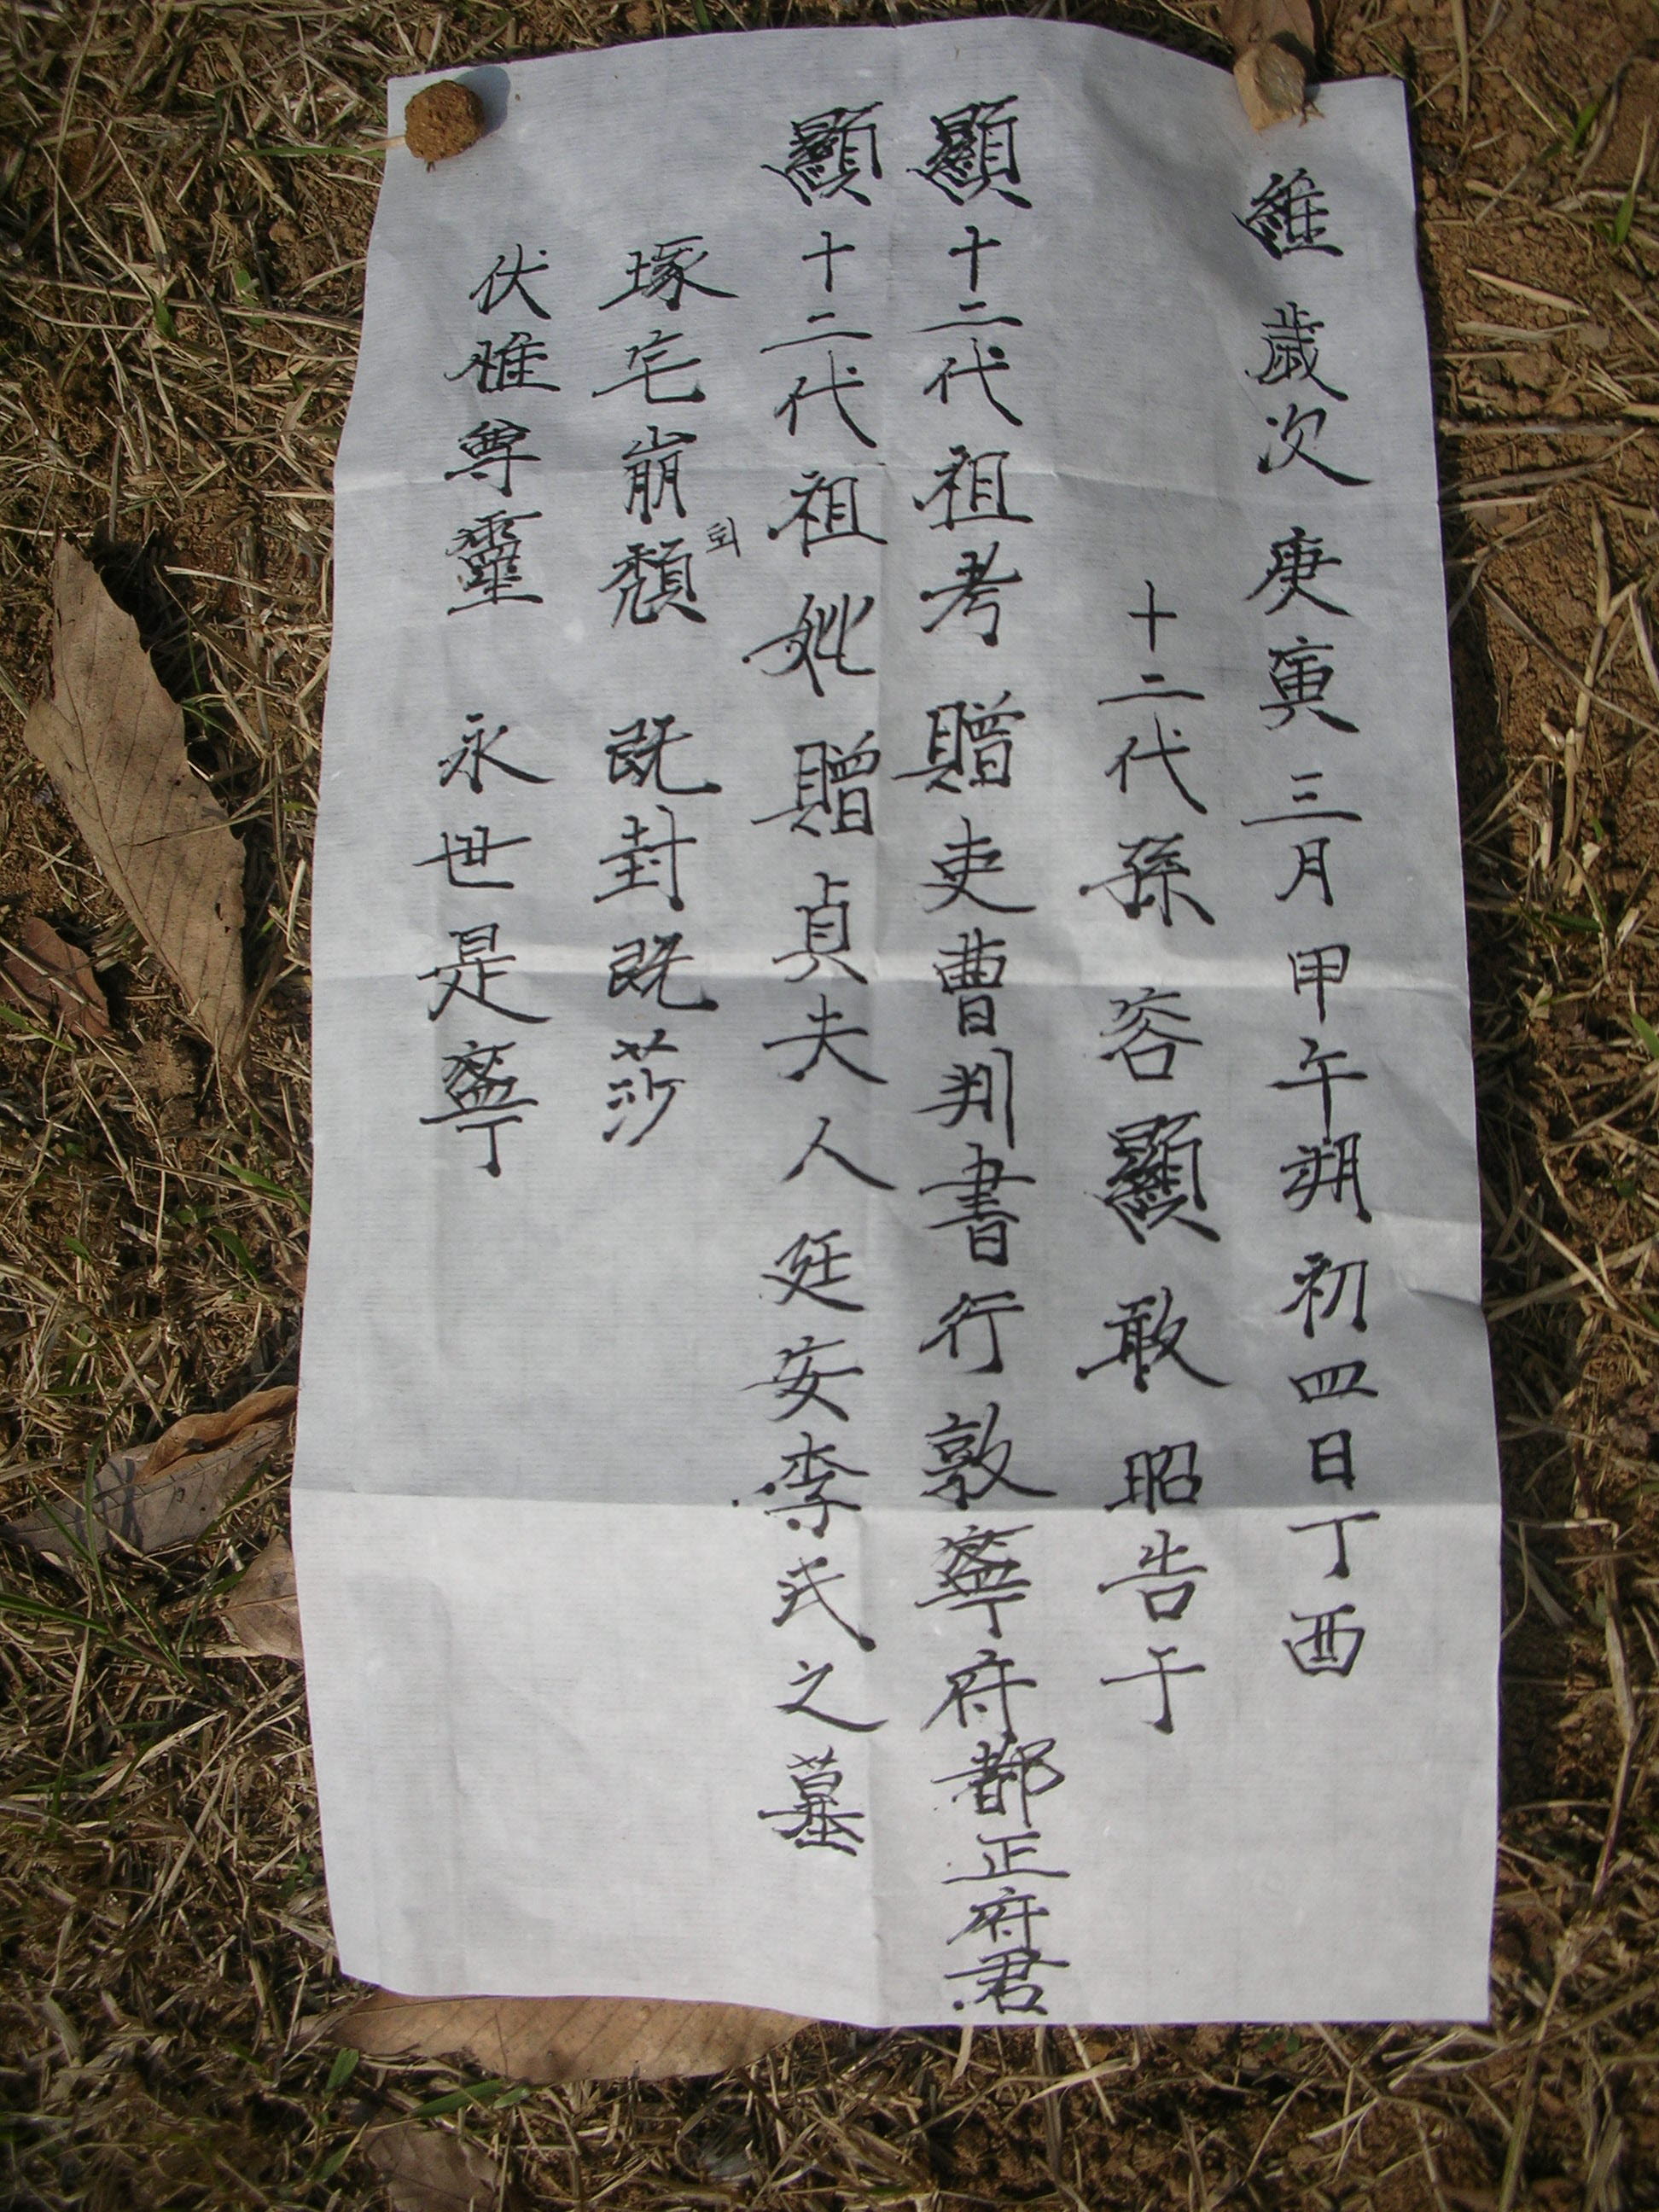 維 歲次 庚寅 三月 甲午朔 初四日 丁酉
十二代孫 容顯 敢 昭告于
顯十二代祖考 贈吏曹判書行敦寧府都正府君
顯十二代祖妣 贈貞夫人 延安李氏之墓
琢宅崩頹 旣封旣莎
퇴
伏惟尊靈 永世是寧